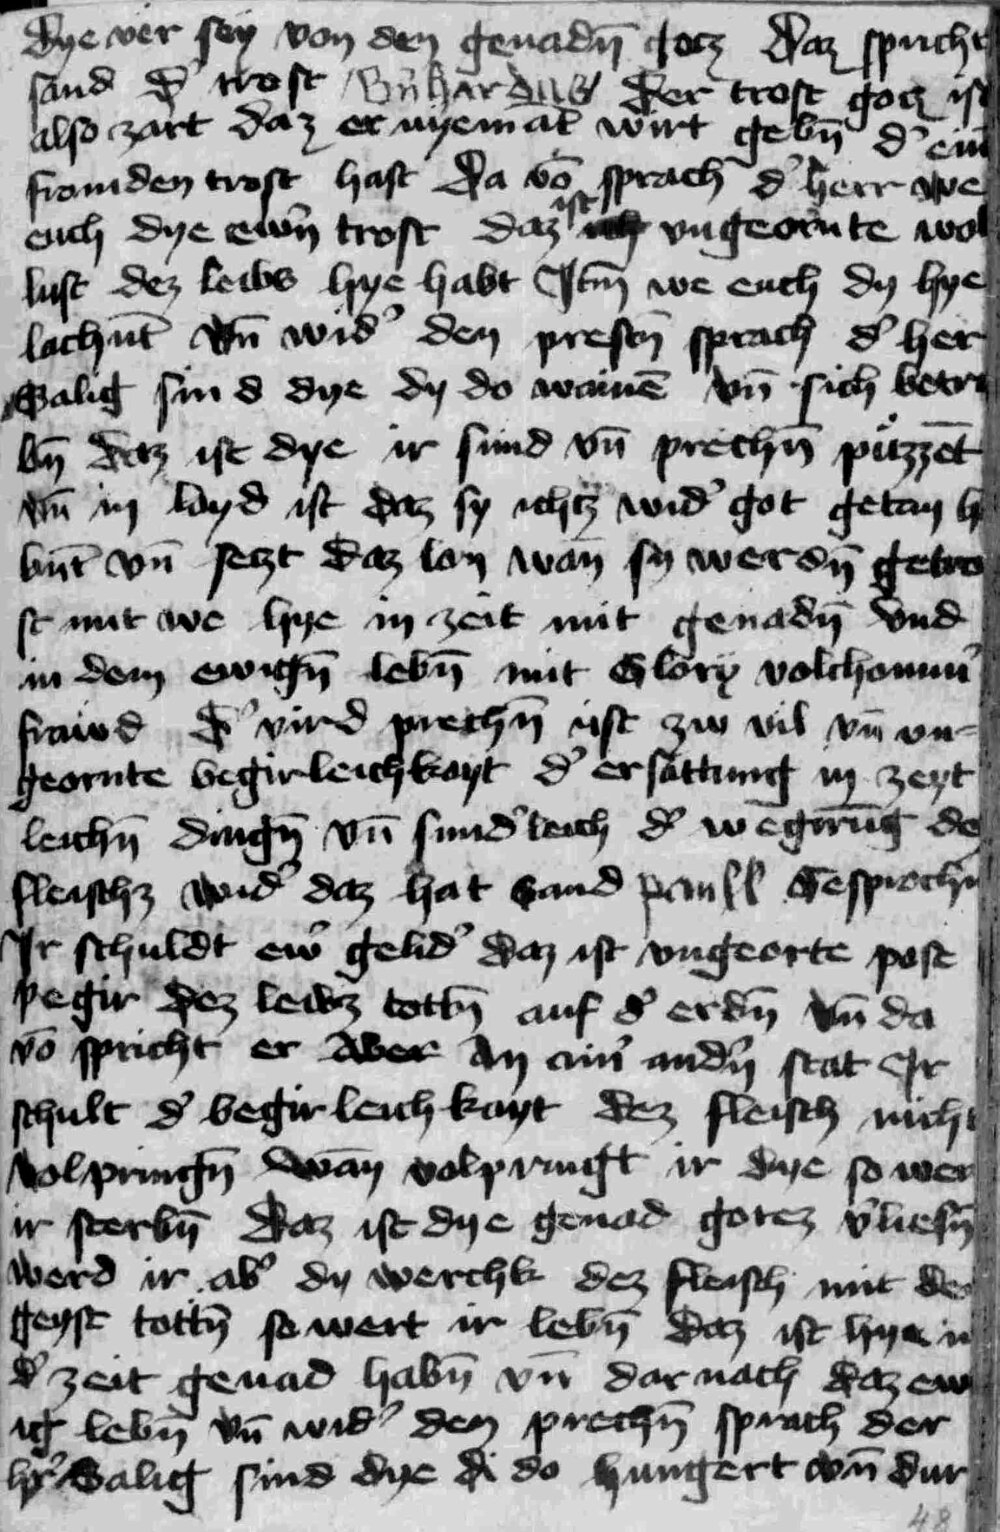 dye ver sey von den genadn̄ gotz Daz spricht
sand d' trost Bn̄hardus Der trost gotz ist
also zart daz er nyemāt wirt gebn̄ d' ein
framden trost hast Da vō sprach d' herr we
euch dye ewrn̄ trost daz ist vngeornte wol
lust dez leibs hye habt Itm̄ we euch dy hye
lachnt̄ vn̄ wid' den presn̄ sprach d' her
Salig sind dye dy do wainē vn̄ sich betru
bn̄ daz ist dye ir sund vn̄ prechn̄ puzzēt
vn̄ in layd ist daz sy ichtz wid' got getan h
bnt̄ vn̄ setzt daz lon wan̄ sy werdn̄ getro
st mit we hye in zeit mit genadn̄ vnd
in dem ewign̄ lebn̄ mit Glory volchomm'
frawd d' vird prechn̄ ist zw vil vn̄ vn-
geornte begirleichkayt d' ersattung in zeyt
leichn̄ dingn̄ vn̄ sund'leich d' wegirūg de
fleischz wid' daz hat sand paull Gesprochn
Ir schuldt ew' gelid' daz ist vngeorte pose
pegir dez leibz tottn̄ auf d' erdn̄ vn̄ da
vō spricht er Aber An ain' andn̄ stat Ir
schult d' begirleichkayt dez fleisch nicht
volpringn̄ wan̄ volpringt ir dye so wer
ir sterbn̄ Daz ist dye genad gotez v'liesn̄
werd ir ab' dy werchk dez fleisch mit de
geyst tottn̄ so wert ir lebn̄ Daz ist hye in
d' zeit genad habn̄ vn̄ darnach daz ew
ig lebn̄ vn̄ wid' den prechn̄ sprach der
hr' Salig sind dye di do hungert vn̄ dur
48